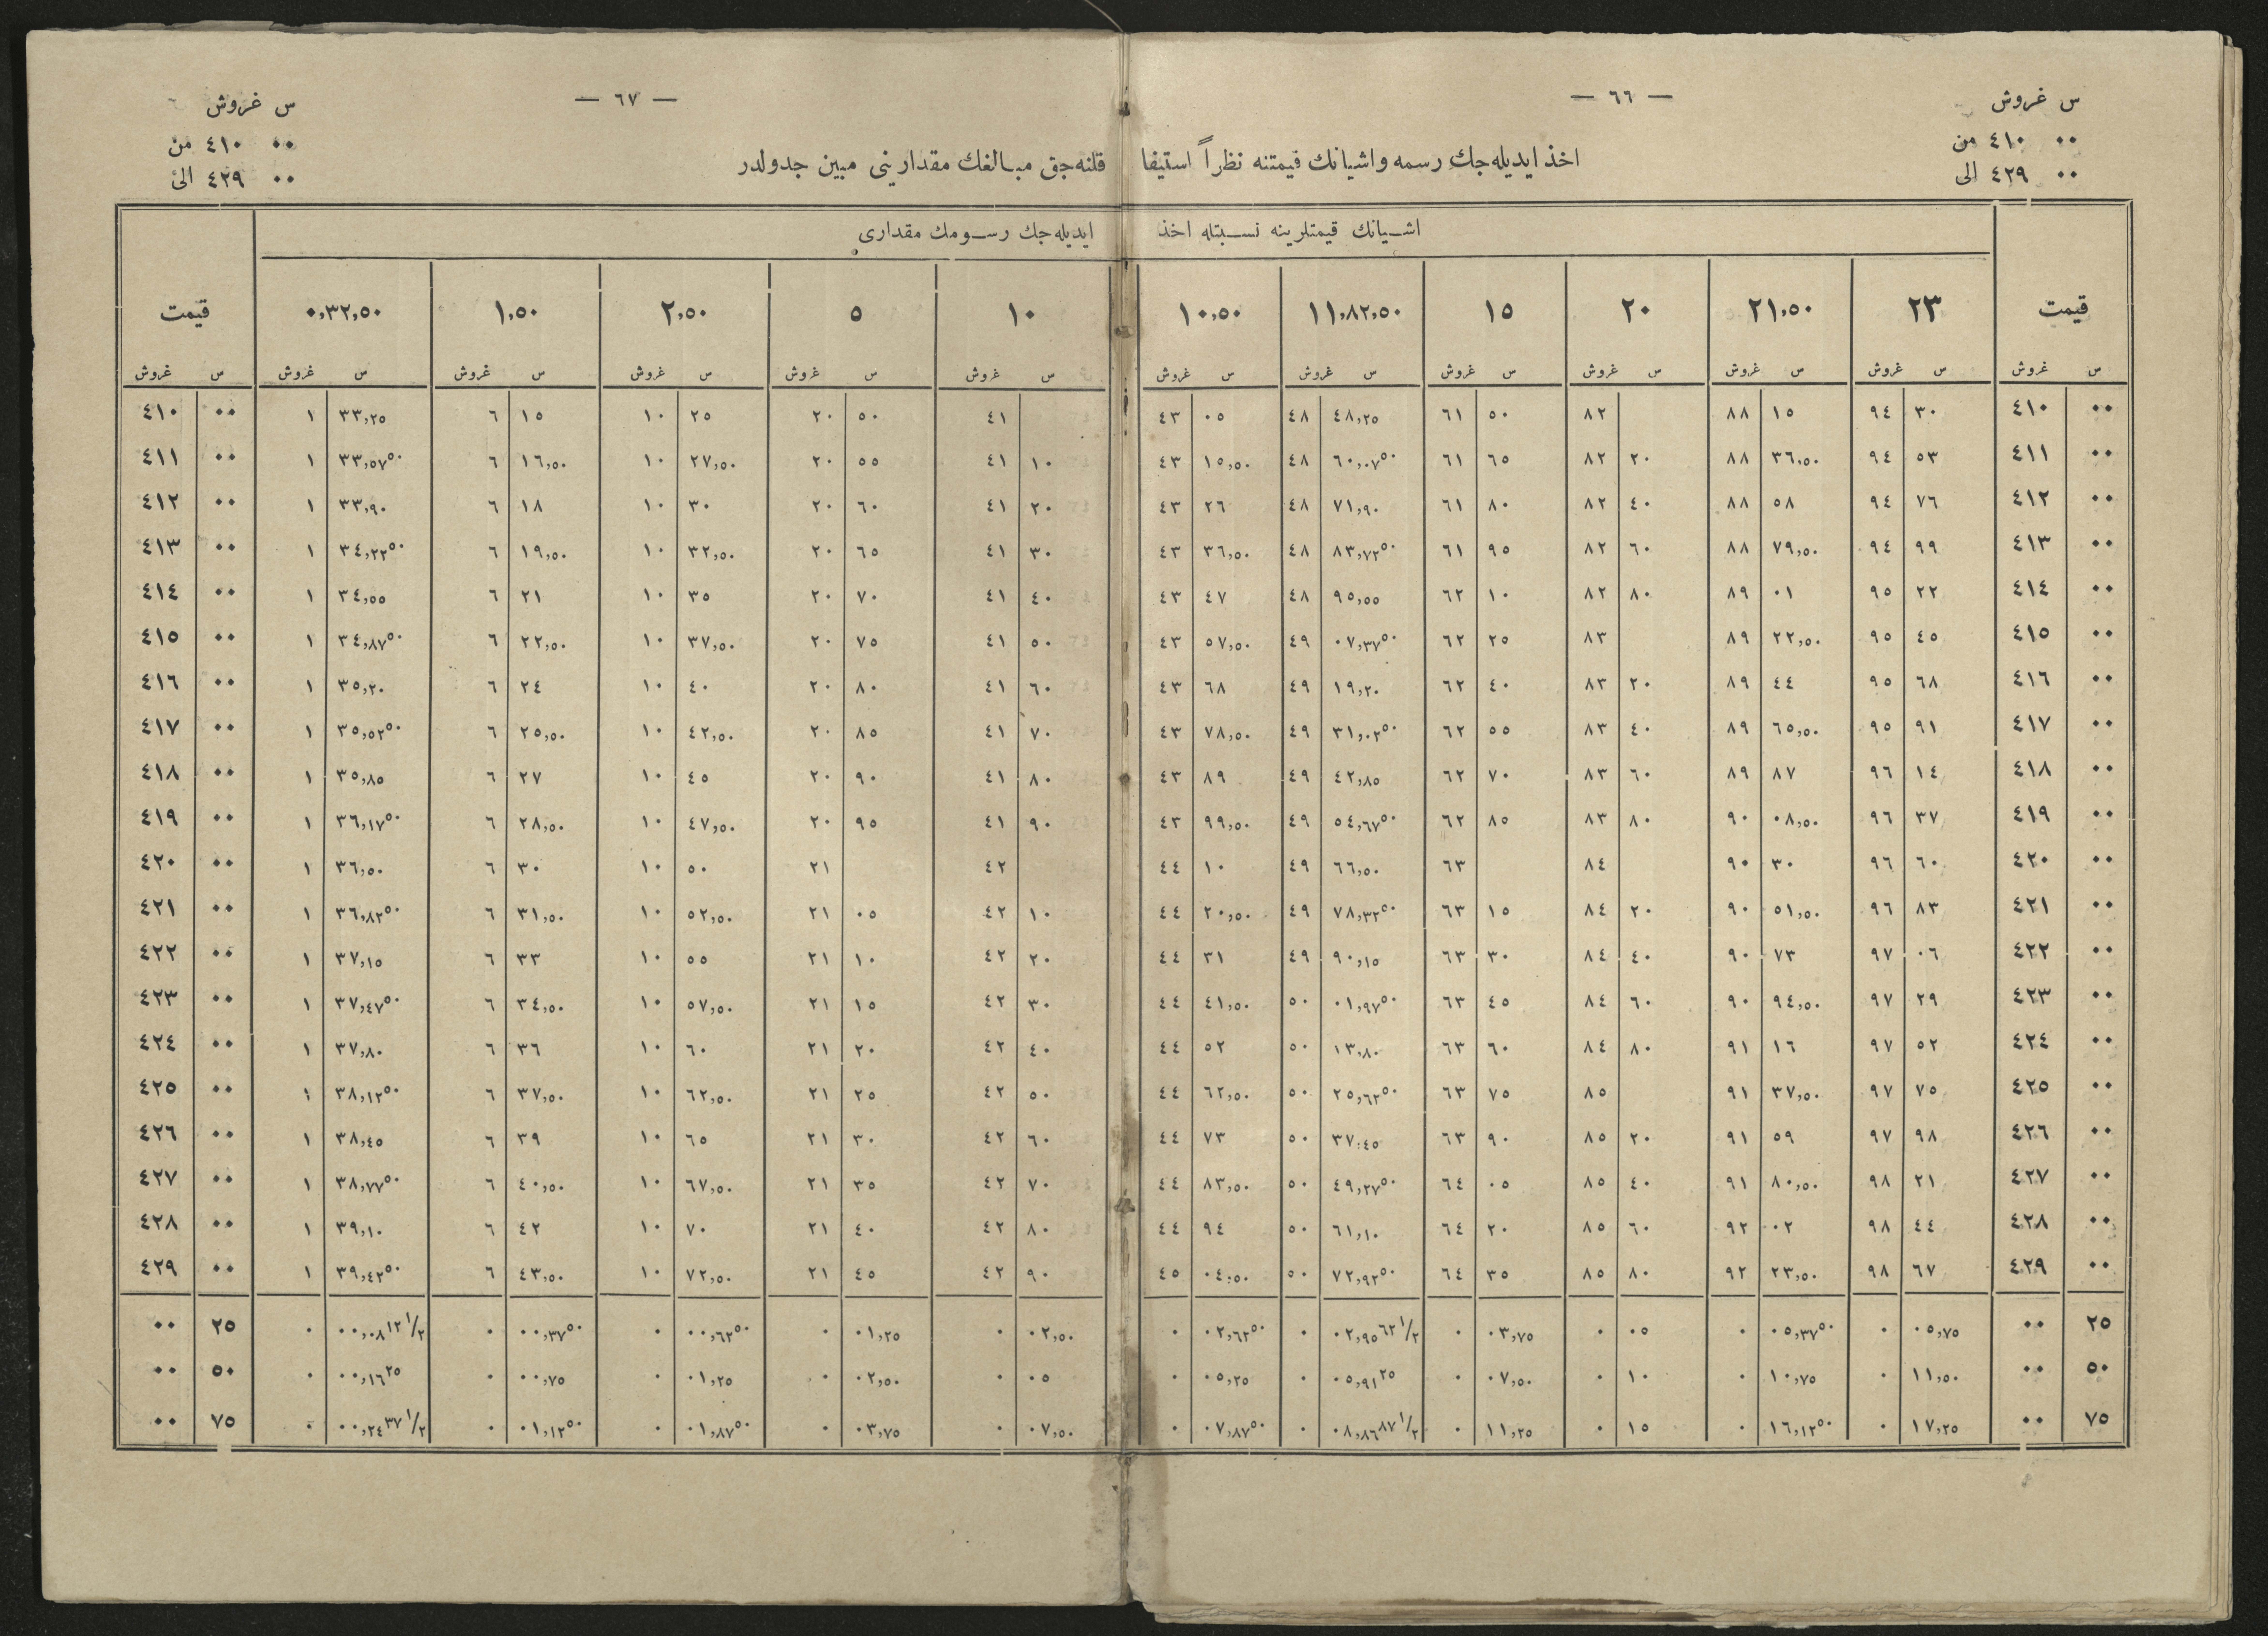 س غروش — ٦٦ — — ٦٧ — س غروش
٠٠ ٤١٠ من ٠٠ ٤١٠ من
اخذ ایدیله‌جك رسمه واشیانك قیمتنه نظراً استیفا قلنه‌جق مبالغك مقدارینی مبین جدولدر
٠٠ ٤٢٩ الی ٠٠ ٤٢٩ الی
اشیانك قیمتلرینه نسبتله اخذ ایدیله‌جك رسومك مقداری
قیمت ٢٣ ٢١,٥٠ ٢٠ ١٥ ١١,٨٢,٥٠ ١٠,٥٠ ١٠ ٥ ٢,٥٠ ١,٥٠ ٠,٣٢,٥٠ قیمت
س غروش س غروش س غروش س غروش س غروش س غروش س غروش س غروش س غروش س غروش س غروش س غروش س غروش
٠٠ ٤١٠ ٣٠ ٩٤ ١٥ ٨٨ ٨٢ ٥٠ ٦١ ٤٨,٢٥ ٤٨ ٠٥ ٤٣ ٤١ ٥٠ ٢٠ ٢٥ ١٠ ١٥ ٦ ٣٣,٢٥ ١ ٠٠ ٤١٠
٠٠ ٤١١ ٥٣ ٩٤ ٣٦,٥٠ ٨٨ ٢٠ ٨٢ ٦٥ ٦١ ٦٠,٠٧٥٠ ٤٨ ١٥,٥٠ ٤٣ ١٠ ٤١ ٥٥ ٢٠ ٢٧,٥٠ ١٠ ١٦,٥٠ ٦ ٣٣,٥٧٥٠ ١ ٠٠ ٤١١
٠٠ ٤١٢ ٧٦ ٩٤ ٥٨ ٨٨ ٤٠ ٨٢ ٨٠ ٦١ ٧١,٩٠ ٤٨ ٢٦ ٤٣ ٢٠ ٤١ ٦٠ ٢٠ ٣٠ ١٠ ١٨ ٦ ٣٣,٩٠ ١ ٠٠ ٤١٢
٠٠ ٤١٣ ٩٩ ٩٤ ٧٩,٥٠ ٨٨ ٦٠ ٨٢ ٩٥ ٦١ ٨٣,٧٢٥٠ ٤٨ ٣٦,٥٠ ٤٣ ٣٠ ٤١ ٦٥ ٢٠ ٣٢,٥٠ ١٠ ١٩,٥٠ ٦ ٣٤,٢٢٥٠ ١ ٠٠ ٤١٣
٠٠ ٤١٤ ٢٢ ٩٥ ٠١ ٨٩ ٨٠ ٨٢ ١٠ ٦٢ ٩٥,٥٥ ٤٨ ٤٧ ٤٣ ٤٠ ٤١ ٧٠ ٢٠ ٣٥ ١٠ ٢١ ٦ ٣٤,٥٥ ١ ٠٠ ٤١٤
٠٠ ٤١٥ ٤٥ ٩٥ ٢٢,٥٠ ٨٩ ٨٣ ٢٥ ٦٢ ٠٧,٣٧٥٠ ٤٩ ٥٧,٥٠ ٤٣ ٥٠ ٤١ ٧٥ ٢٠ ٣٧,٥٠ ١٠ ٢٢,٥٠ ٦ ٣٤,٨٧٥٠ ١ ٠٠ ٤١٥
٠٠ ٤١٦ ٦٨ ٩٥ ٤٤ ٨٩ ٢٠ ٨٣ ٤٠ ٦٢ ١٩,٢٠ ٤٩ ٦٨ ٤٣ ٦٠ ٤١ ٨٠ ٢٠ ٤٠ ١٠ ٢٤ ٦ ٣٥,٢٠ ١ ٠٠ ٤١٦
٠٠ ٤١٧ ٩١ ٩٥ ٦٥,٥٠ ٨٩ ٤٠ ٨٣ ٥٥ ٦٢ ٣١,٠٢٥٠ ٤٩ ٧٨,٥٠ ٤٣ ٧٠ ٤١ ٨٥ ٢٠ ٤٢,٥٠ ١٠ ٢٥,٥٠ ٦ ٣٥,٥٢٥٠ ١ ٠٠ ٤١٧
٠٠ ٤١٨ ١٤ ٩٦ ٨٧ ٨٩ ٦٠ ٨٣ ٧٠ ٦٢ ٤٢,٨٥ ٤٩ ٨٩ ٤٣ ٨٠ ٤١ ٩٠ ٢٠ ٤٥ ١٠ ٢٧ ٦ ٣٥,٨٥ ١ ٠٠ ٤١٨
٠٠ ٤١٩ ٣٧ ٩٦ ٠٨,٥٠ ٩٠ ٨٠ ٨٣ ٨٥ ٦٢ ٥٤,٦٧٥٠ ٤٩ ٩٩,٥٠ ٤٣ ٩٠ ٤١ ٩٥ ٢٠ ٤٧,٥٠ ١٠ ٢٨,٥٠ ٦ ٣٦,١٧٥٠ ١ ٠٠ ٤١٩
٠٠ ٤٢٠ ٦٠ ٩٦ ٣٠ ٩٠ ٨٤ ٦٣ ٦٦,٥٠ ٤٩ ١٠ ٤٤ ٤٢ ٢١ ٥٠ ١٠ ٣٠ ٦ ٣٦,٥٠ ١ ٠٠ ٤٢٠
٠٠ ٤٢١ ٨٣ ٩٦ ٥١,٥٠ ٩٠ ٢٠ ٨٤ ١٥ ٦٣ ٧٨,٣٢٥٠ ٤٩ ٢٠,٥٠ ٤٤ ١٠ ٤٢ ٠٥ ٢١ ٥٢,٥٠ ١٠ ٣١,٥٠ ٦ ٣٦,٨٢٥٠ ١ ٠٠ ٤٢١
٠٠ ٤٢٢ ٠٦ ٩٧ ٧٣ ٩٠ ٤٠ ٨٤ ٣٠ ٦٣ ٩٠,١٥ ٤٩ ٣١ ٤٤ ٢٠ ٤٢ ١٠ ٢١ ٥٥ ١٠ ٣٣ ٦ ٣٧,١٥ ١ ٠٠ ٤٢٢
٠٠ ٤٢٣ ٢٩ ٩٧ ٩٤,٥٠ ٩٠ ٦٠ ٨٤ ٤٥ ٦٣ ٠١,٩٧٥٠ ٥٠ ٤١,٥٠ ٤٤ ٣٠ ٤٢ ١٥ ٢١ ٥٧,٥٠ ١٠ ٣٤,٥٠ ٦ ٣٧,٤٧٥٠ ١ ٠٠ ٤٢٣
٠٠ ٤٢٤ ٥٢ ٩٧ ١٦ ٩١ ٨٠ ٨٤ ٦٠ ٦٣ ١٣,٨٠ ٥٠ ٥٢ ٤٤ ٤٠ ٤٢ ٢٠ ٢١ ٦٠ ١٠ ٣٦ ٦ ٣٧,٨٠ ١ ٠٠ ٤٢٤
٠٠ ٤٢٥ ٧٥ ٩٧ ٣٧,٥٠ ٩١ ٨٥ ٧٥ ٦٣ ٢٥,٦٢٥٠ ٥٠ ٦٢,٥٠ ٤٤ ٥٠ ٤٢ ٢٥ ٢١ ٦٢,٥٠ ١٠ ٣٧,٥٠ ٦ ٣٨,١٢٥٠ ١ ٠٠ ٤٢٥
٠٠ ٤٢٦ ٩٨ ٩٧ ٥٩ ٩١ ٢٠ ٨٥ ٩٠ ٦٣ ٣٧,٤٥ ٥٠ ٧٣ ٤٤ ٦٠ ٤٢ ٣٠ ٢١ ٦٥ ١٠ ٣٩ ٦ ٣٨,٤٥ ١ ٠٠ ٤٢٦
٠٠ ٤٢٧ ٢١ ٩٨ ٨٠,٥٠ ٩١ ٤٠ ٨٥ ٠٥ ٦٤ ٤٩,٢٧٥٠ ٥٠ ٨٣,٥٠ ٤٤ ٧٠ ٤٢ ٣٥ ٢١ ٦٧,٥٠ ١٠ ٤٠,٥٠ ٦ ٣٨,٧٧٥٠ ١ ٠٠ ٤٢٧
٠٠ ٤٢٨ ٤٤ ٩٨ ٠٢ ٩٢ ٦٠ ٨٥ ٢٠ ٦٤ ٦١,١٠ ٥٠ ٩٤ ٤٤ ٨٠ ٤٢ ٤٠ ٢١ ٧٠ ١٠ ٤٢ ٦ ٣٩,١٠ ١ ٠٠ ٤٢٨
٠٠ ٤٢٩ ٦٧ ٩٨ ٢٣,٥٠ ٩٢ ٨٠ ٨٥ ٣٥ ٦٤ ٧٢,٩٢٥٠ ٥٠ ٠٤,٥٠ ٤٥ ٩٠ ٤٢ ٤٥ ٢١ ٧٢,٥٠ ١٠ ٤٣,٥٠ ٦ ٣٩,٤٢٥٠ ١ ٠٠ ٤٢٩
٢٥ ٠٠ ٠٥,٧٥ ٠ ٠٥,٣٧٥٠ ٠ ٠٥ ٠ ٠٣,٧٥ ٠ ٠٢,٩٥٦٢ ١/٢ ٠ ٠٢,٦٢٥٠ ٠ ٠٢,٥٠ ٠ ٠١,٢٥ ٠ ٠٠,٦٢٥٠ ٠ ٠٠,٣٧٥٠ ٠ ٠٠,٠٨١٢ ١/٢ ٠ ٢٥ ٠٠
٥٠ ٠٠ ١١,٥٠ ٠ ١٠,٧٥ ٠ ١٠ ٠ ٠٧,٥٠ ٠ ٠٥,٩١٢٥ ٠ ٠٥,٢٥ ٠ ٠٥ ٠ ٠٢,٥٠ ٠ ٠١,٢٥ ٠ ٠٠,٧٥ ٠ ٠٠,١٦٢٥ ٠ ٥٠ ٠٠
٧٥ ٠٠ ١٧,٢٥ ٠ ١٦,١٢٥٠ ٠ ١٥ ٠ ١١,٢٥ ٠ ٠٨,٨٦٨٧ ١/٢ ٠ ٠٧,٨٧٥٠ ٠ ٠٧,٥٠ ٠ ٠٣,٧٥ ٠ ٠١,٨٧٥٠ ٠ ٠١,١٢٥٠ ٠ ٠٠,٢٤٣٧ ١/٢ ٠ ٧٥ ٠٠